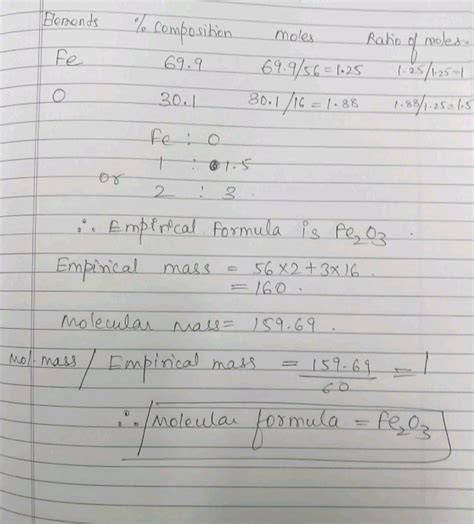 Elements % Composition moles Ratio of moles
Fe 69.9 69.9/56 = 1.25 1.25/1.25 = 1
O 30.1 30.1/16 = 1.88 1.88/1.25 = 1.5
Fe : O
1 : 1.5
or
2 : 3
∴ Empirical formula is Fe₂O₃.
Empirical mass = 56×2+3×16
= 160.
Molecular mass = 159.69.
Mol. mass / Empirical mass = 159.69/60 = 1
∴ Molecular formula = Fe₂O₃